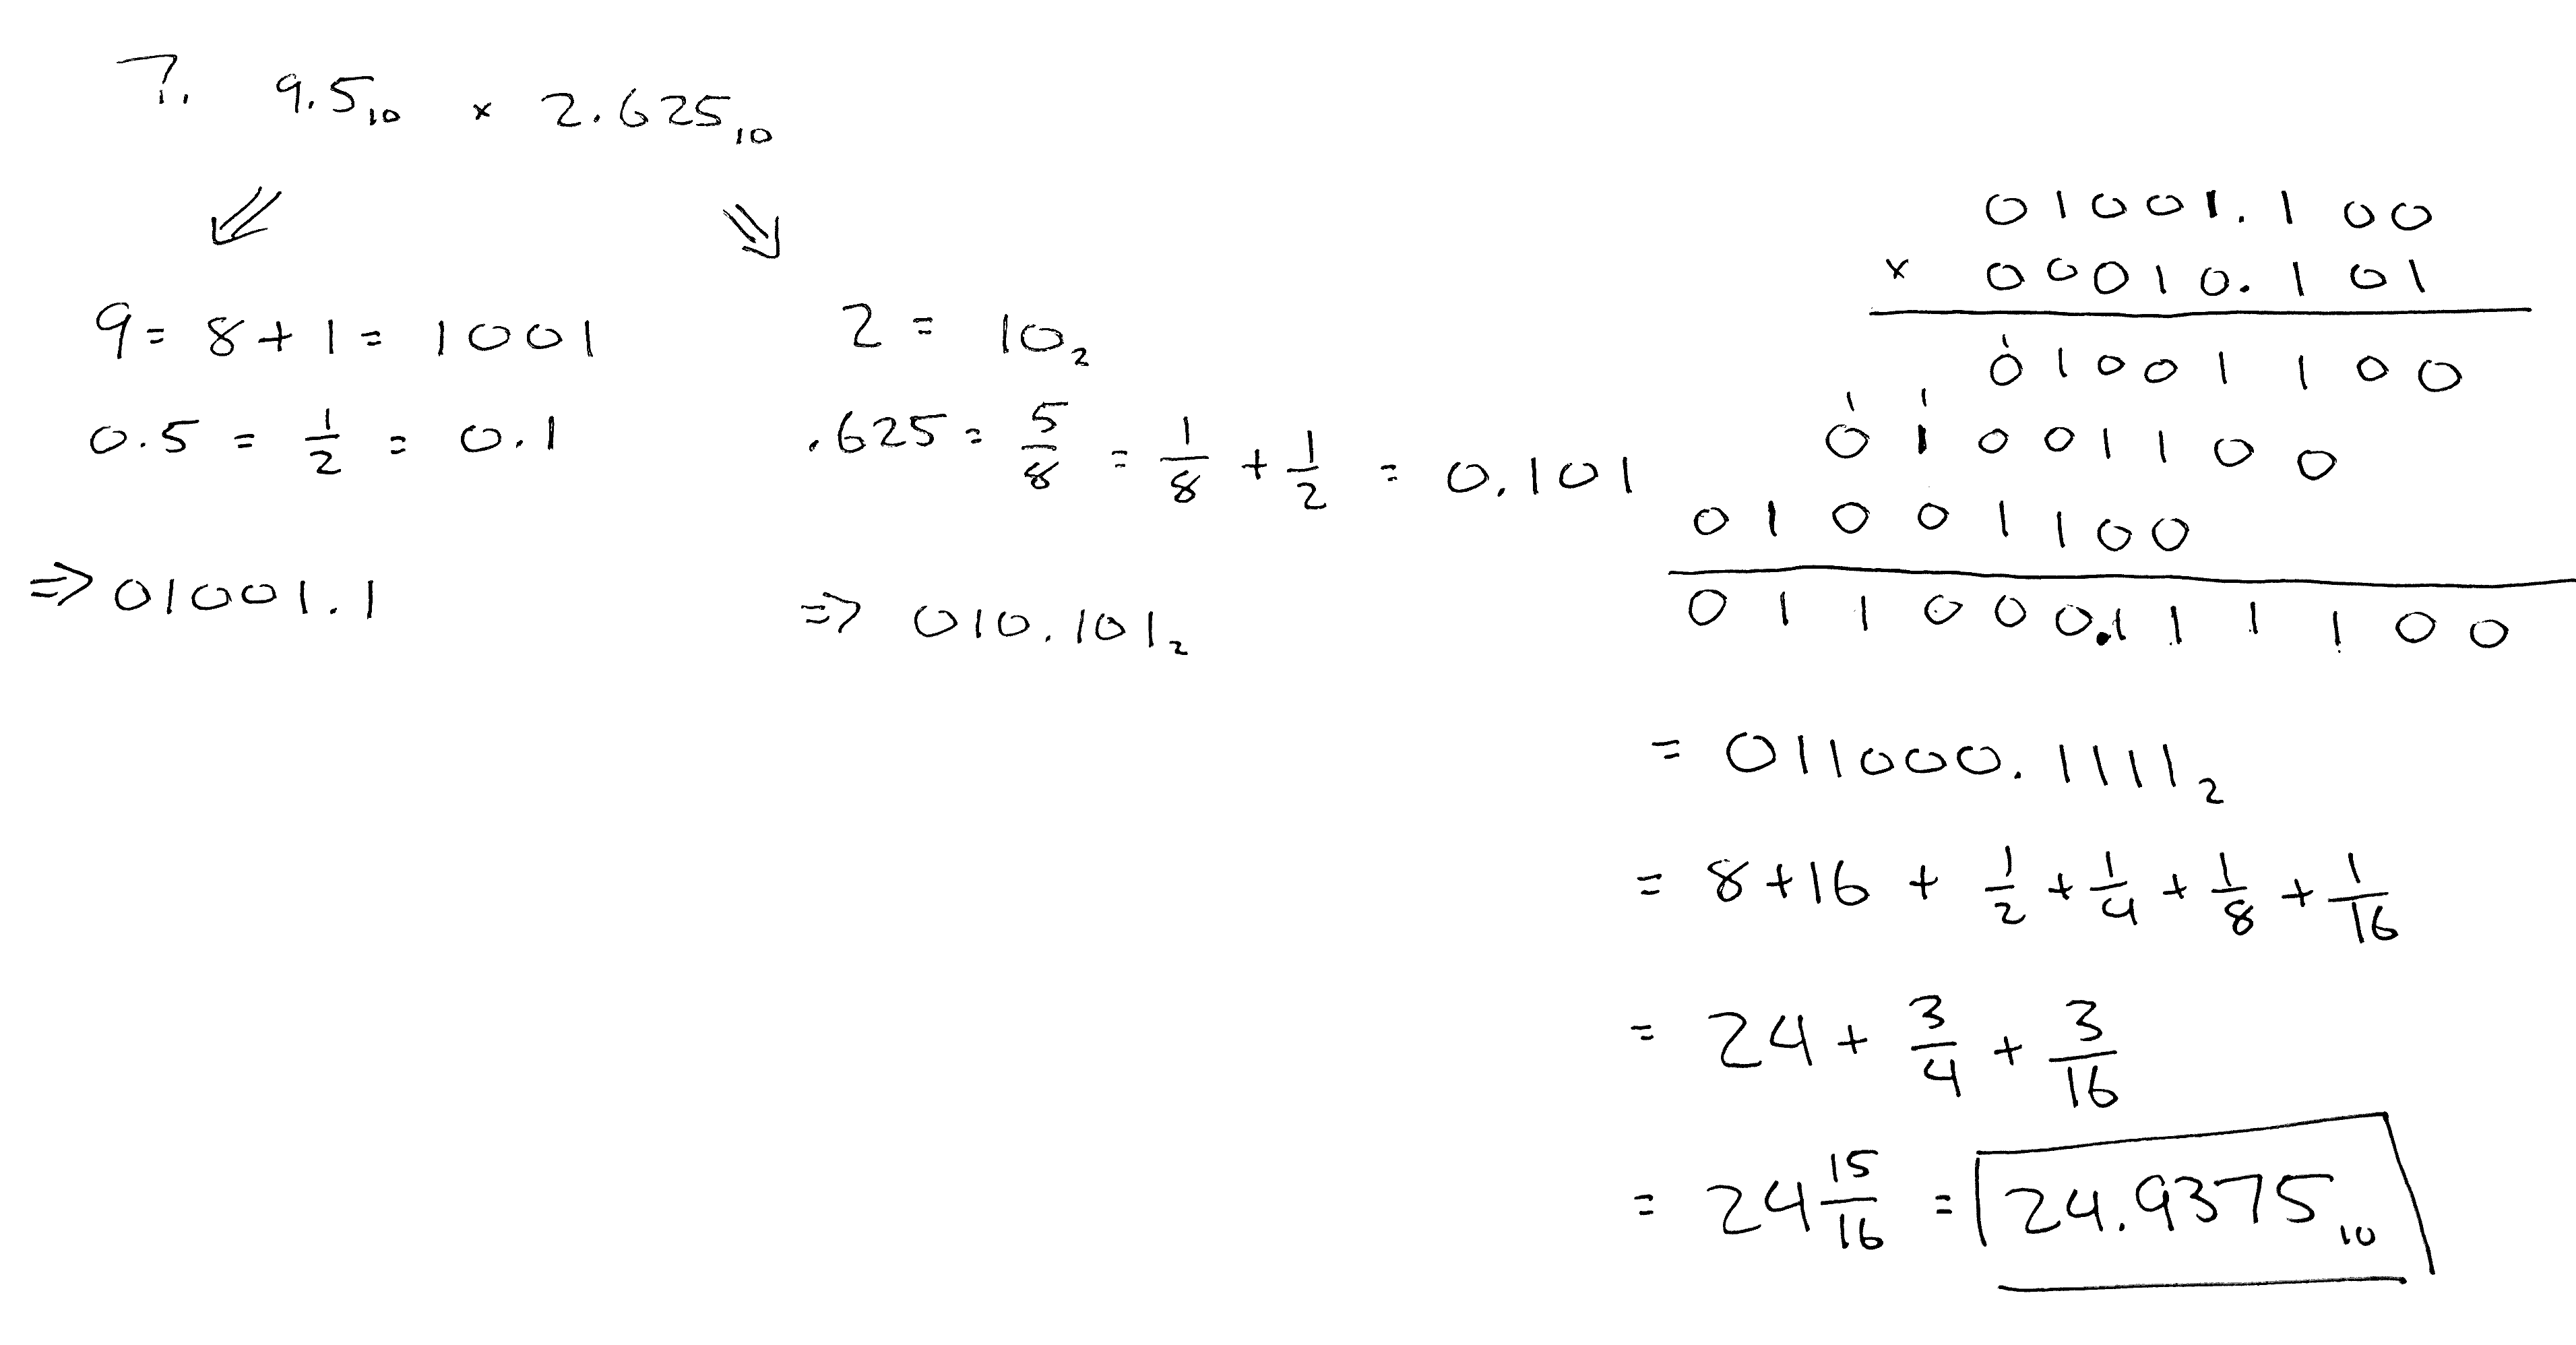 7. 9.5₁₀ × 2.625₁₀
⇙ ⇘
9 = 8 + 1 = 1001
0.5 = 1/2 = 0.1
⇒ 01001.1
2 = 10₂
.625 = 5/8 = 1/8 + 1/2 = 0.101
⇒ 010.101₂
01001.100
× 00010.101
1
01001100
1 1
01001100
01001100
011000.111100
= 011000.1111₂
= 8 + 16 + 1/2 + 1/4 + 1/8 + 1/16
= 24 + 3/4 + 3/16
= 24 15/16 = 24.9375₁₀